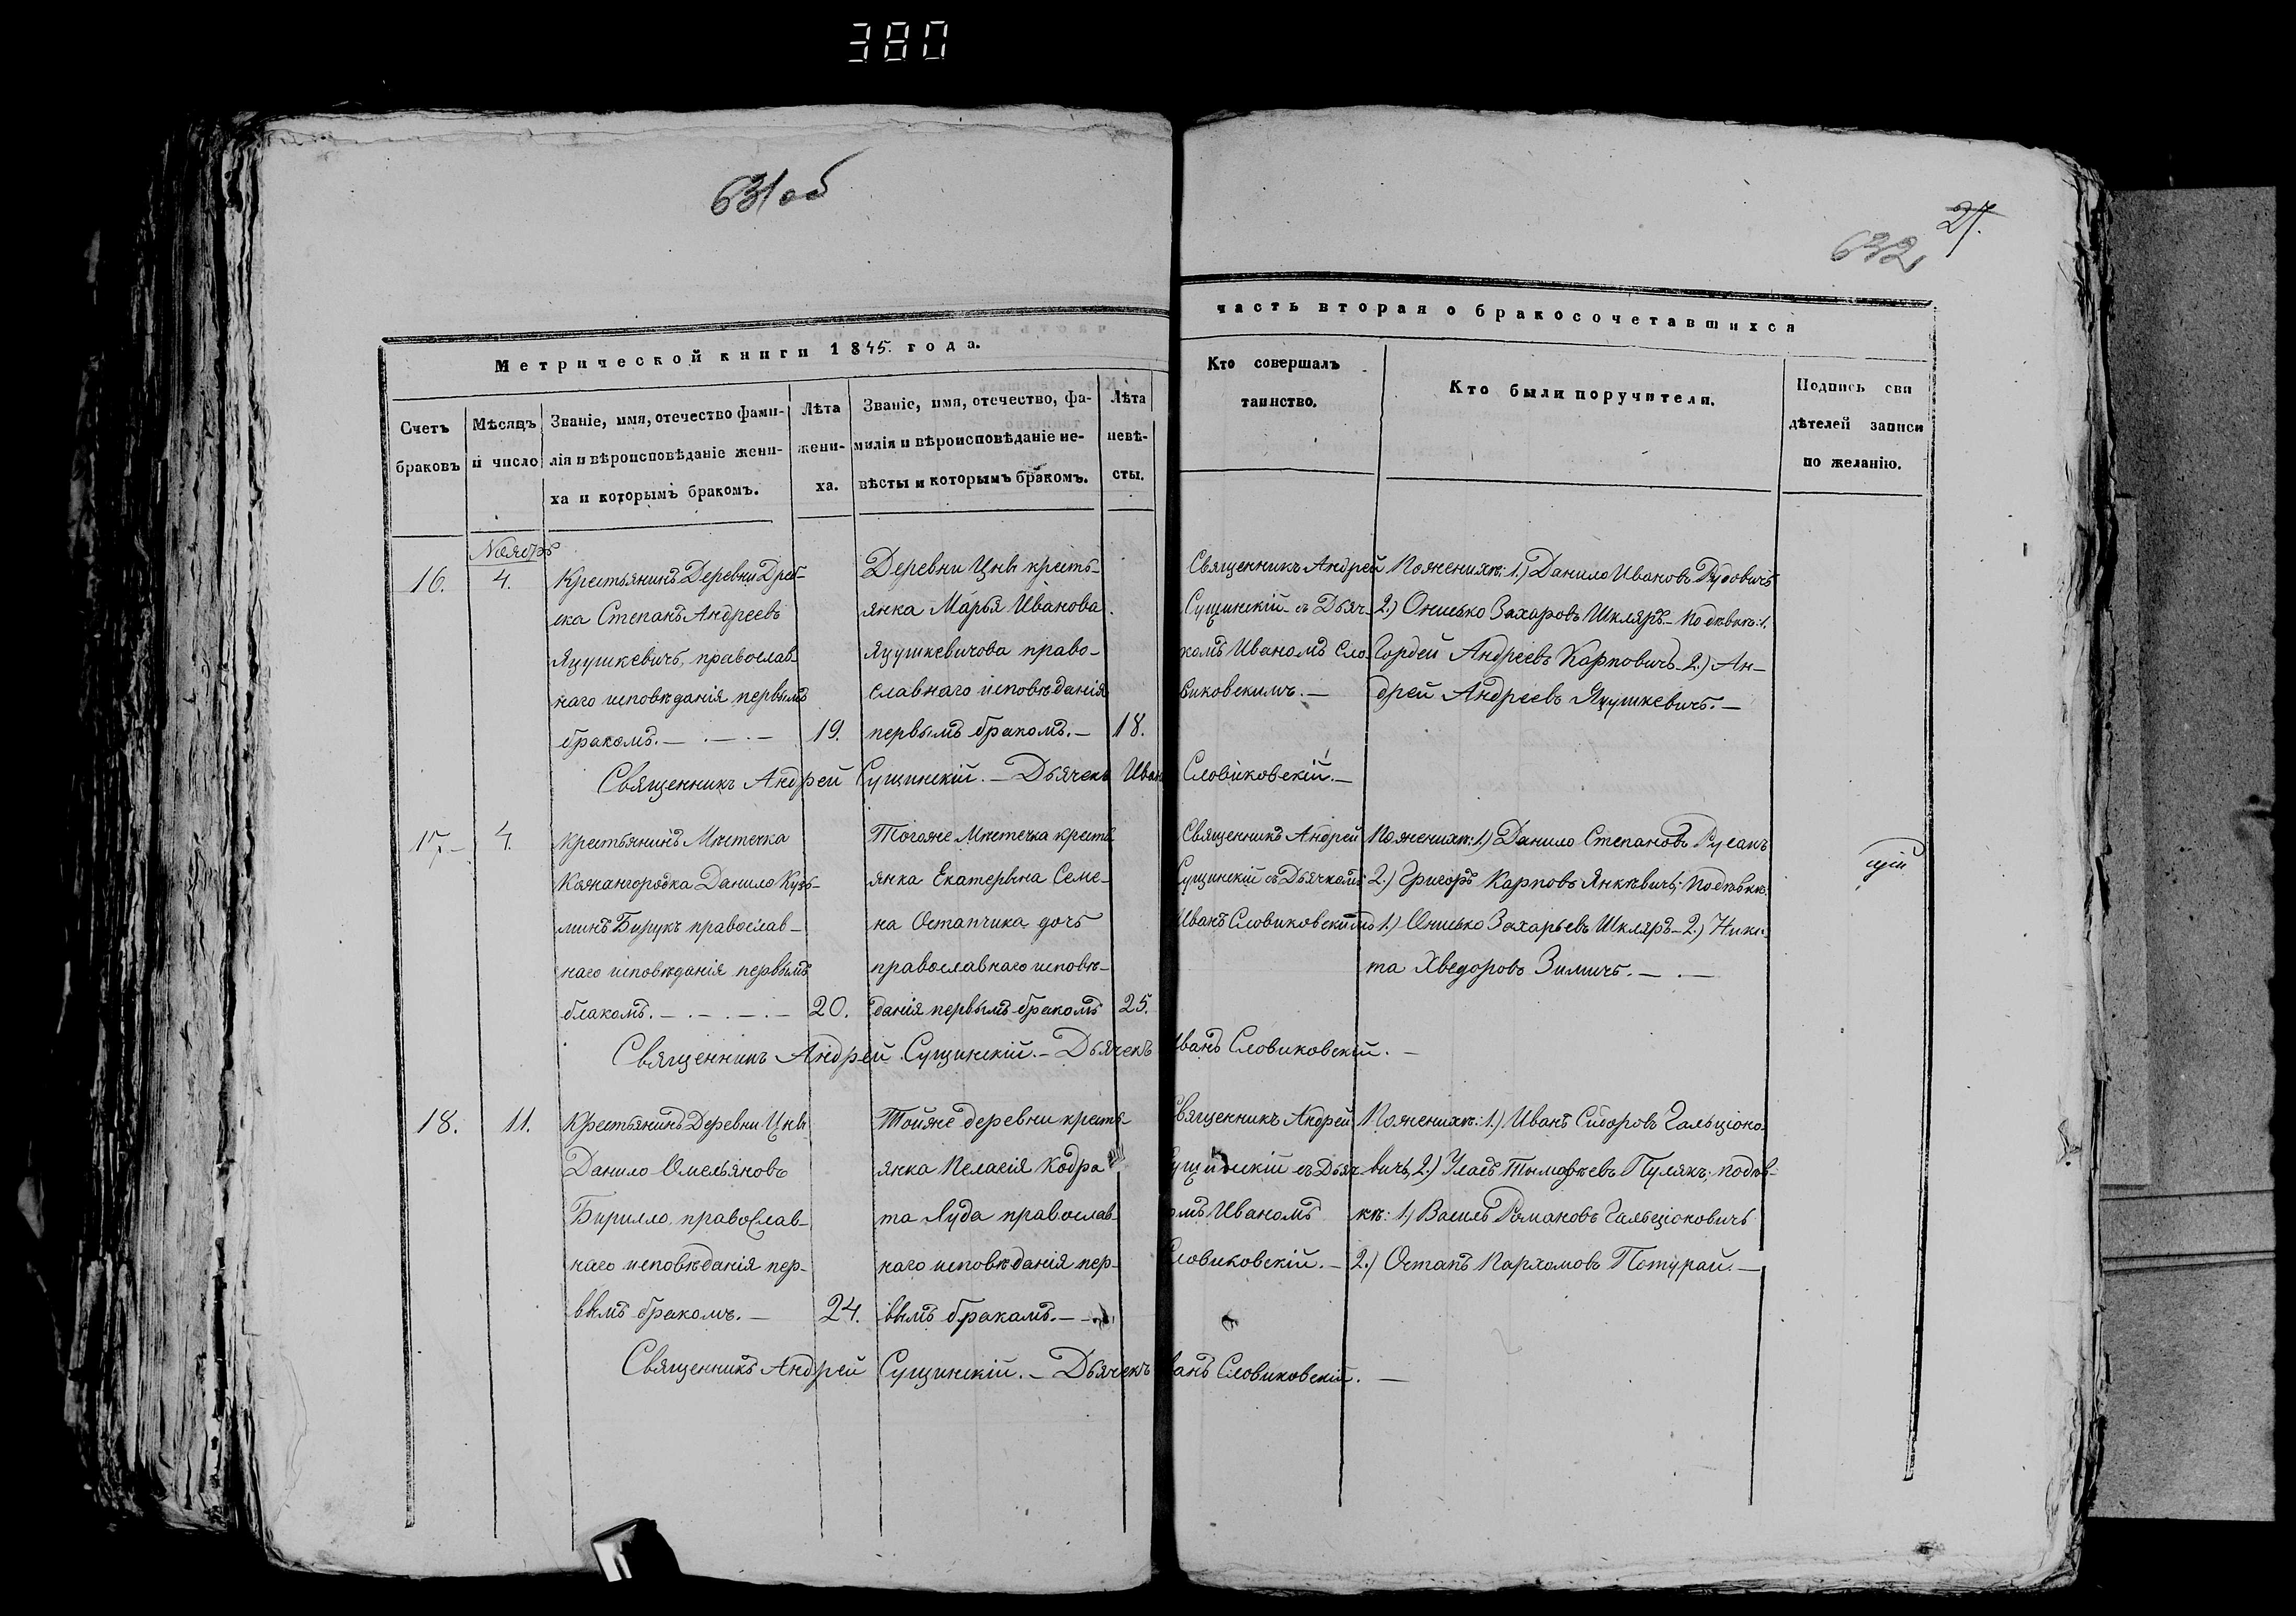 380
631об
27.
632
Метрической книги 1845. года.
часть вторая о бракосочетавшихся
Счетъ браковъ
Мѣсяцъ и число
Званіе, имя, отечество фами-
лія и вѣроисповѣданіе жени-
ха и которымъ бракомъ.
Лѣта
жени-
ха.
Званіе, имя, отечество, фа-
милія и вѣроисповѣданіе не-
вѣсты и которымъ бракомъ.
Лѣта
невѣ-
сты.
Кто совершалъ
таинство.
Кто были поручители.
Подпись сви
дѣтелей записи
по желанію.
Ноябрь
16.
4.
Крестьянинъ Деревни Дреб-
ска Степанъ Андреевъ
Яцушкевичъ, православ-
наго исповѣданія первымъ
бракомъ. —
19.
Деревни Цны кресть-
янка Марья Иванова
Яцушкевичова право-
славнаго исповѣданія
первымъ бракомъ. —
18.
Священникъ Андрей
Сущинскій съ Дьяч-
комъ Иваномъ Сло-
виковскимъ. —
Поженихѣ: 1.) Данило Ивановъ Рудовичъ
2.) Онисько Захаровъ Шкляръ — Подѣвкѣ: 1.
Гордей Андреевъ Карповичъ — 2.) Ан-
дрей Андреевъ Яцушкевичъ. —
Священникъ Андрей Сущинскій. — Дьячекъ Иванъ Словиковскій. —
17. —
4.
Крестьянинъ Мѣстечка
Кожангородка Данило Кузь-
минъ Бирукъ православ-
наго исповѣданія первымъ
блакомъ. —
20.
Тогоже Мѣстечка кресть
янка Екатерына Семе-
на Остапчика дочь
православнаго исповѣ-
данія первымъ бракомъ
25.
Священникъ Андрей
Сущинскій съ Дьячкомъ
Иванъ Словиковскимъ
Поженихѣ: 1.) Данило Степановъ Русакъ
2.) Григоръ Карповъ Янкѣвичъ; Подѣвкѣ:
1.) Онисько Захарьевъ Шкляръ — 2.) Ники-
та Хведоровъ Зимичъ. —
щій
Священникъ Андрей Сущинскій. — Дьячекъ Иванъ Словиковскій. —
18.
11.
Крестьянинъ Деревни Цны
Данило Омельяновъ
Бирилло, православ-
наго исповѣданія пер-
вымъ бракомъ. —
24.
Тойже деревни кресть-
янка Пелагія Кодра
та Луда православ-
наго исповѣданія пер-
вымъ бракамъ. —
Священникъ Андрей
Сущинскій съ Дьяч
омъ Иваномъ
Словиковскій. —
Поженихѣ: 1.) Иванъ Сидоровъ Гальціоно-
вичъ, 2.) Уласъ Тымофѣевъ Пулякъ; подѣв-
кѣ: 1.) Василь Романовъ Гальціоновичъ
2.) Остапъ Пархомовъ Потурай. —
Священникъ Андрей Сущинскій. — Дьячекъ Иванъ Словиковскій. —